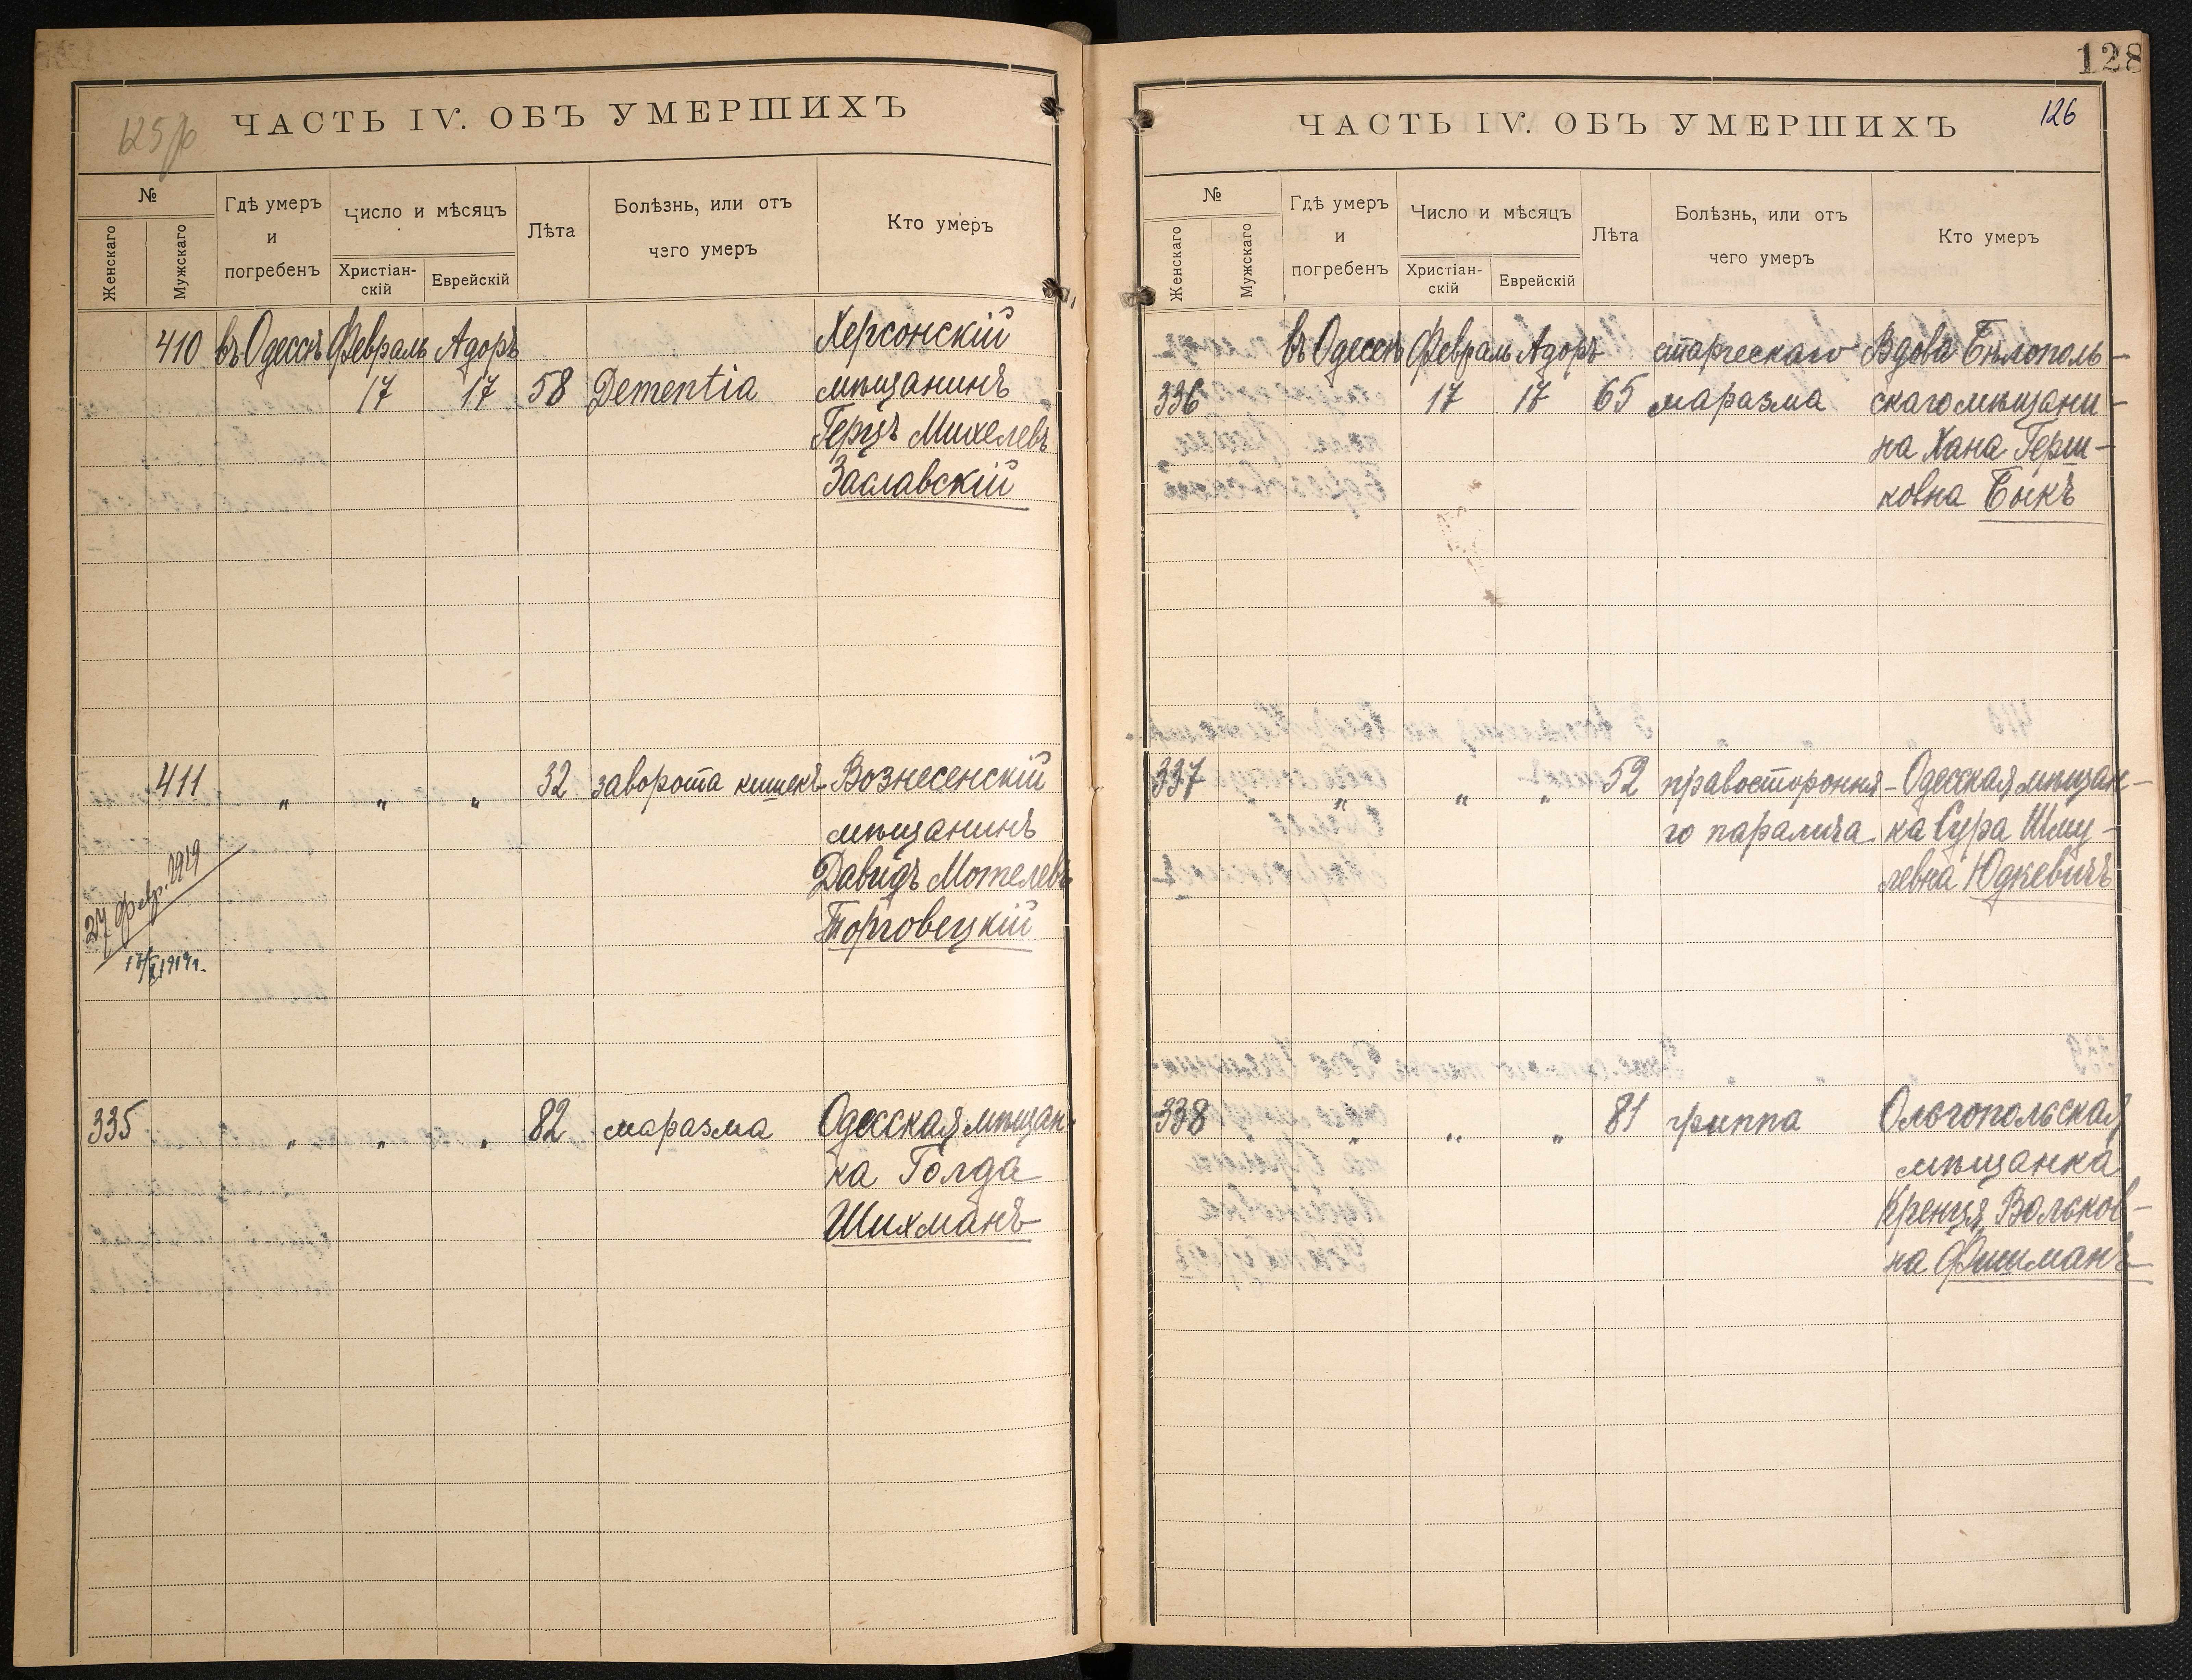 125 об
ЧАСТЬ IV. ОБЪ УМЕРШИХЪ
№
Женскаго
Мужскаго
Гдѣ умеръ
и
погребенъ
Число и мѣсяцъ
Христіан-
скій
Еврейскій
Лѣта
Болѣзнь, или отъ
чего умеръ
Кто умеръ
410 въ Одессѣ Февраль Адоръ Херсонскій
17 17 58 Dementia мѣщанинъ
Герцъ Михелевъ
Заславскій
411 " " " 32 заворота кишекъ Вознесенскій
мѣщанинъ
Давидъ Мотелевъ
Торговецкій
27 февр. 1919
17/X 1919 г.
335 " " " 82 маразма Одесская мѣщан-
ка Голда
Шихманъ
128
126
ЧАСТЬ IV. ОБЪ УМЕРШИХЪ
№
Женскаго
Мужскаго
Гдѣ умеръ
и
погребенъ
Число и мѣсяцъ
Христіан-
скій
Еврейскій
Лѣта
Болѣзнь, или отъ
чего умеръ
Кто умеръ
въ Одессѣ Февраль Адоръ старческаго Вдова Бѣлополь-
336 17 17 65 маразма скаго мѣщани-
на Хана Герш-
ковна Быкъ
337 " " " 52 правостороння- Одесская мѣщан-
го паралича ка Сура Шму-
левна Юдкевичъ
338 " " " 81 гриппа Ольгопольская
мѣщанка
Кренця Вольков-
на Фишманъ